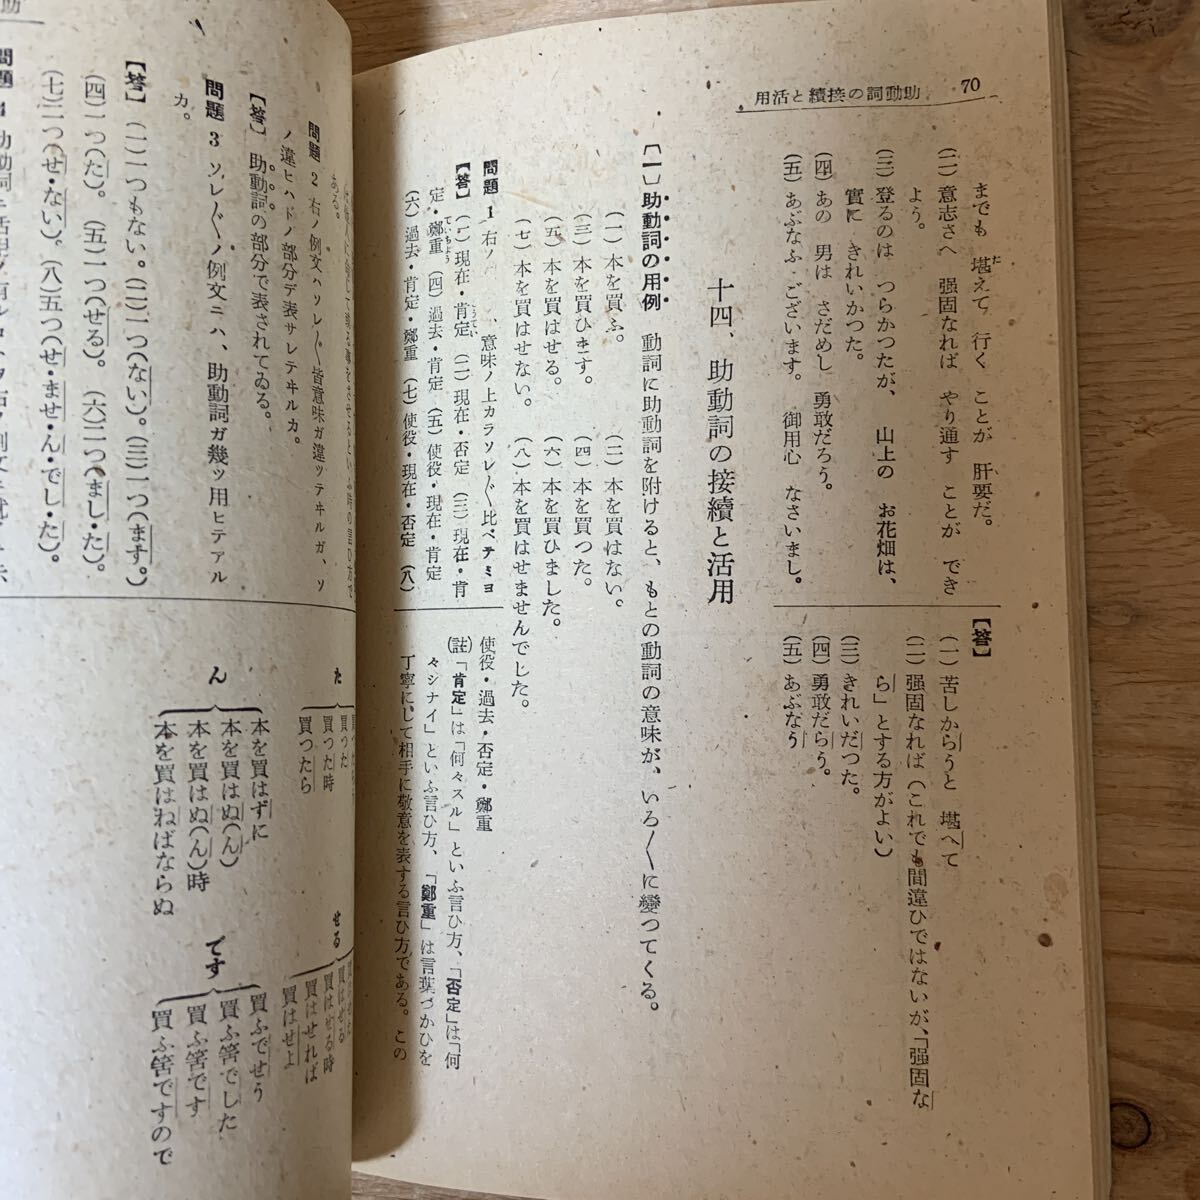 70
用活と續接の詞動助
までも 堪えて 行く ことが 肝要だ。
(二)意志さへ 强固なれば やり通す ことが でき
よう。
(三)登るのは つらかつたが、 山上の お花畑は、
實に きれいかつた。
(四)あの 男は さだめし 勇敢だろう。
(五)あぶなふ ございます。 御用心 なさいまし。
【答】
(一)苦しからうと 堪へて
(二)强固なれば(これでも間違ひではないが、「强固な
ら」とする方がよい)
(三)きれいだつた。
(四)勇敢だらう。
(五)あぶなう
十四、助動詞の接續と活用
〔一〕助動詞の用例 動詞に助動詞を附けると、もとの動詞の意味が、いろ〱に變つてくる。
(一)本を買ふ。
(二)本を買はない。
(三)本を買ひます。
(四)本を買つた。
(五)本を買はせる。
(六)本を買ひました。
(七)本を買はせない。
(八)本を買はせませんでした。
問題 1 右ノ 、意味ノ上カラソレ〲比ベテミヨ
【答】(一)現在・肯定 (二)現在・否定 (三)現在・肯
定・鄭重 (四)過去・肯定 (五)使役・現在・肯定
(六)過去・肯定・鄭重 (七)使役・現在・否定 (八)
使役・過去・否定・鄭重
(註)「肯定」は「何々スル」といふ言ひ方、「否定」は「何
々シナイ」といふ言ひ方、「鄭重」は言葉づかひを
丁寧にして相手に敬意を表する言ひ方である。この
ある。
問題 2 右ノ例文ハソレ〲皆意味ガ違ツテヰルガ、ソ
ノ違ヒハドノ部分デ表サレテヰルカ。
【答】助動詞の部分で表されてゐる。
問題 3 ソレ〲ノ例文ニハ、助動詞ガ幾ツ用ヒテアル
カ。
【答】(一)一つもない。(二)一つ(ない)。(三)一つ(ます。)
(四)一つ(た)。(五)一つ(せる)。(六)二つ(まし・た)。
(七)二つ(せ・ない)。(八)五つ(せ・ませ・ん・でし・た)。
問題 4
た
買つた
買つた時
買つたら
せる
買はせる
買はせる時
買はせれば
買はせよ
ん
本を買はずに
本を買はぬ(ん)
本を買はぬ(ん)時
本を買はねばならぬ
です
買ふでせう
買ふ筈でした
買ふ筈です
買ふ筈ですので